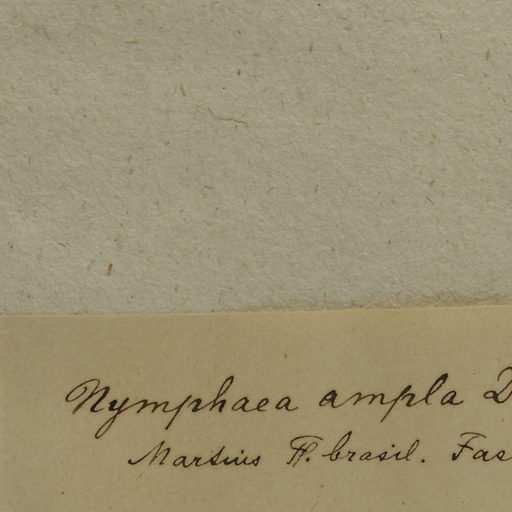 Nymphaea ampla D
Martius Fl. brasil. Fas